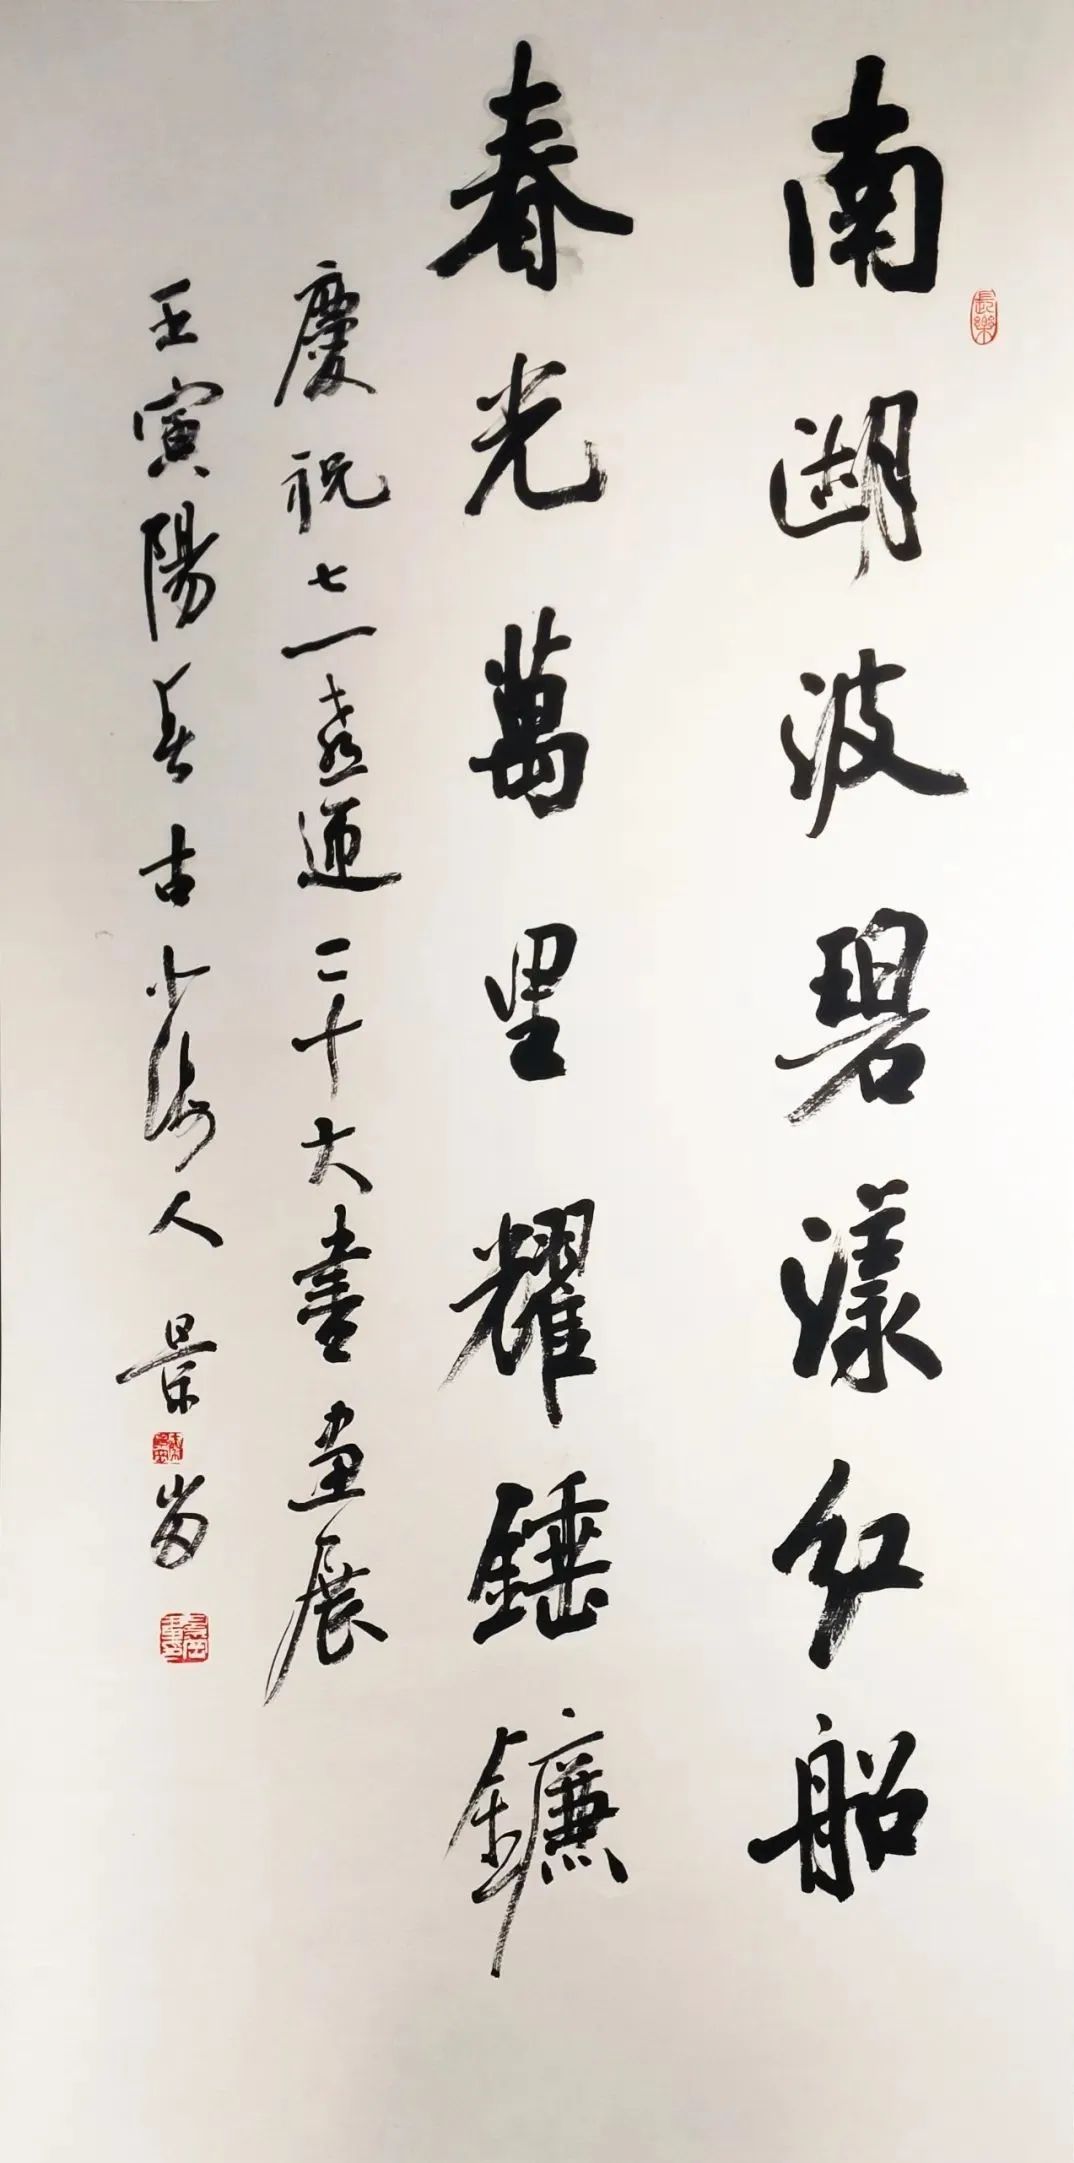 長樂
南湖波碧漾红船
春光萬里耀錘鐮
慶祝七一喜迎二十大書畫展
壬寅陽春古少海人 景